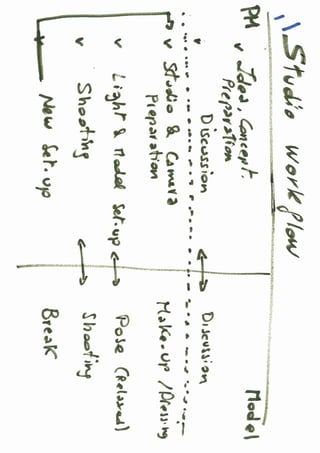 Studio Workflow
PH Model
v Idea, Concept.
Preparation
v Discussion Discussion
v Studio & Camera Make-up / Dressing
Preparation
v Light & Model Set-up Pose (Relaxed)
v Shooting Shooting
New Set-up Break